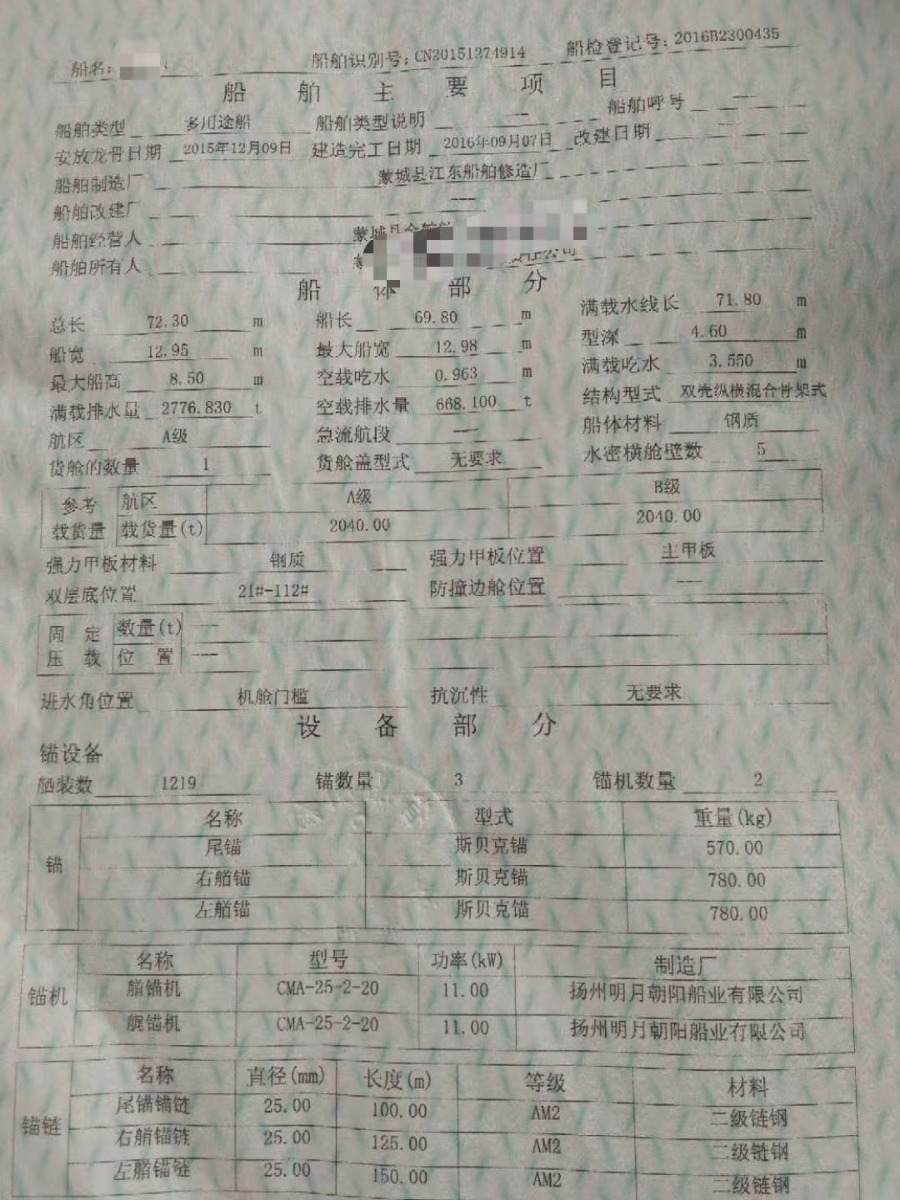 船名: 船舶识别号: CN20151274914 船检登记号: 2016B2300435
船舶主要项目
船舶类型 多用途船 船舶类型说明 --- 船舶呼号 ---
安放龙骨日期 2015年12月09日 建造完工日期 2016年09月07日 改建日期 ---
船舶制造厂 蒙城县江东船舶修造厂
船舶改建厂 ---
船舶经营人 蒙城县
船舶所有人 公司
船体部分
总长 72.30 m 船长 69.80 m 满载水线长 71.80 m
船宽 12.95 m 最大船宽 12.98 m 型深 4.60 m
最大船高 8.50 m 空载吃水 0.963 m 满载吃水 3.550 m
满载排水量 2776.830 t 空载排水量 668.100 t 结构型式 双壳纵横混合骨架式
航区 A级 急流航段 --- 船体材料 钢质
货舱的数量 1 货舱盖型式 无要求 水密横舱壁数 5
参考 航区 A级 B级
载货量 载货量(t) 2040.00 2040.00
强力甲板材料 钢质 强力甲板位置 主甲板
双层底位置 21#-112# 防撞边舱位置 ---
固定 数量(t) ---
压载 位置 ---
进水角位置 机舱门槛 抗沉性 无要求
设备部分
锚设备
舾装数 1219 锚数量 3 锚机数量 2
锚 名称 型式 重量(kg)
尾锚 斯贝克锚 570.00
右艏锚 斯贝克锚 780.00
左艏锚 斯贝克锚 780.00
锚机 名称 型号 功率(kW) 制造厂
艏锚机 CMA-25-2-20 11.00 扬州明月朝阳船业有限公司
艉锚机 CMA-25-2-20 11.00 扬州明月朝阳船业有限公司
锚链 名称 直径(mm) 长度(m) 等级 材料
尾锚锚链 25.00 100.00 AM2 二级链钢
右艏锚链 25.00 125.00 AM2 二级链钢
左艏锚链 25.00 150.00 AM2 二级链钢